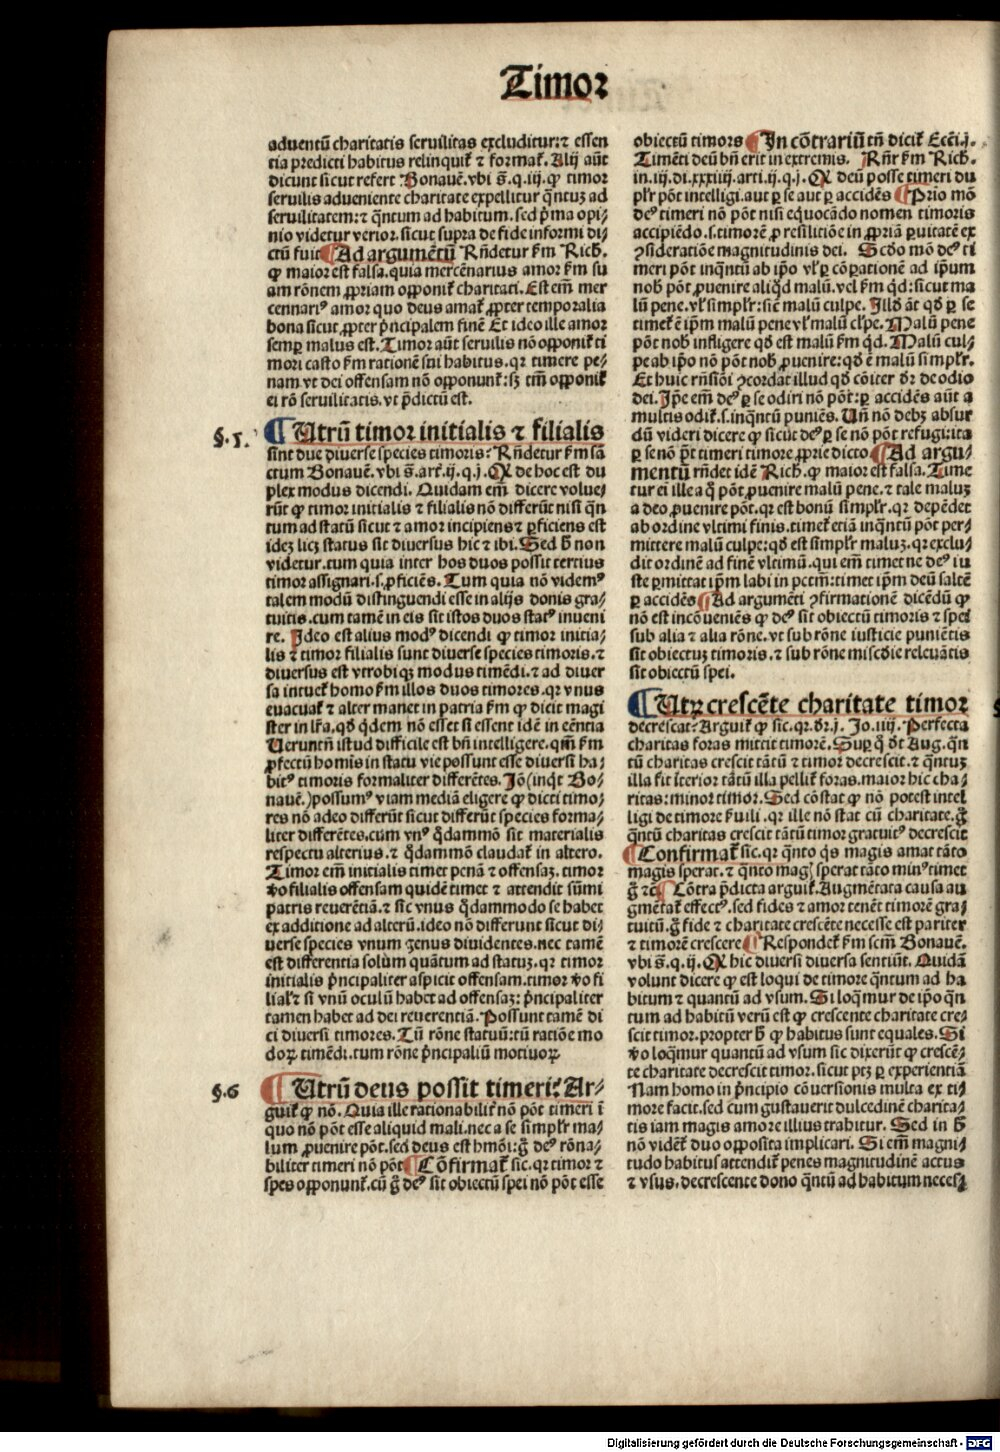 Timor
aduentū charitatis seruilitas excluditur:⁊ essen
tia predicti habitus relinquit̃ ⁊ format̃. Alij aūt
dicunt sicut refert Bonauē. vbi s̄. q. iij. ꝙ timor
seruilis adueniente charitate expellitur q̄ntuꝫ ad
seruilitatem:⁊ q̄ntum ad habitum. sed p̄ma opi/
nio videtur verior. sicut supra de fide informi di/
ctū fuit ¶ Ad argumētū Rñdetur ẜm Rich.
ꝙ maior est falsa. quia mercēnarius amor ẜm su
am rōnem ꝓpriam opponit̃ charitati. Est em̄ mer
cennariꝰ amor quo deus amat̃ ꝓpter temporalia
bona sicut ꝓpter p̄ncipalem finē Et ideo ille amor
semꝑ malus est. Timor aūt seruilis nō opponit̃ ti
mori casto ẜm rationē sui habitus. qꝛ timere pe/
nam vt dei offensam nō opponunt̃: sꝫ tm̄ opponit̃
ei rō seruilitatis. vt p̄dictū est.
§. 5. ¶ Utrū timor initialis ⁊ filialis
sint due diuerse species timoris? Rñdetur ẜm sā
ctum Bonauē. vbi s̄. art̃. ij. q. j. Ꝙ de hoc est du
plex modus dicendi. Quidam em̄ dicere volue/
rūt ꝙ timor initialis ⁊ filialis nō differūt nisi q̄n
tum ad statū sicut ⁊ amor incipiens ⁊ ꝑficiens est
ideꝫ licꝫ status sit diuersus hic ⁊ ibi. Sed h̄ non
videtur. tum quia inter hos duos possit tertius
timor assignari. s. ꝓficiēs. Tum quia nō videmꝰ
talem modū distinguendi esse in alijs donis gra/
tuitis. cum tamē in eis sit istos duos statꝰ inueni
re. Ideo est alius modꝰ dicendi ꝙ timor initia/
lis ⁊ timor filialis sunt diuerse species timoris. ⁊
diuersus est vtrobiqꝫ modus timēdi. ⁊ ad diuer
sa intuet̃ homo ẜm illos duos timores. qꝛ vnus
euacuat̃ ⁊ alter manet in patria ẜm ꝙ dicit magi
ster in lr̄a. qd̓ q̄dem nō esset si essent idē in cēntia
Ueruntñ istud difficile est bn̄ intelligere. qm̄ ẜm
ꝓfectū homīs in statu vie possunt esse diuersi ha/
bitꝰ timoris formaliter differētes. Jō (inq̇t Bo/
nauē.) possumꝰ viam mediā eligere ꝙ dicti timo/
res nō adeo differūt sicut differūt species forma/
liter differētes. cum vnꝰ q̇dammō sit materialis
respectu alterius. ⁊ q̇dammō claudat̃ in altero.
Timor em̄ initialis timet penā ⁊ offensaꝫ. timor
ṽo filialis offensam quidē timet ⁊ attendit sūmi
patris reuerētiā. ⁊ sic vnus q̇dammodo se habet
ex additione ad alterū. ideo nō differunt sicut di/
uerse species vnum genus diuidentes. nec tamē
est differentia solum quātum ad statuꝫ. qꝛ timor
initialis p̄ncipaliter aspicit offensam. timor ṽo fi
lial̃ ⁊ si vnū oculū habet ad offensaꝫ: p̄ncipaliter
tamen habet ad dei reuerentiā. Possunt tamē di
ci diuersi timores. Tū rōne statuū: tū ratiōe mo
doꝝ timēdi. tum rōne p̄ncipaliū motiuoꝝ.
§. 6 ¶ Utrū deus possit timeri? Ar/
guit̃ ꝙ nō. Quia ille rationabilit̃ nō pōt timeri ī
quo nō pōt esse aliquid mali. nec a se simpl̃r ma/
lum ꝓuenire pōt. sed deus est hmōi: g̃ deꝰ rōna/
biliter timeri nō pōt ¶ Cōfirmat̃ sic. qꝛ timor ⁊
spes opponunt̃. cū g̃ deꝰ sit obiectū spei nō pōt esse
obiectū timoris ¶ In cōtrariū tñ dicit̃ Ecci. j.
Timēti deū bn̄ erit in extremis. Rñr ẜm Rich.
in. iij. di. xxxiiij. arti. ij. q. j. Ꝙ deū posse timeri du
pl̃r pōt intelligi. aut ꝑ se aut ꝑ accidēs ¶ Prio mō
deꝰ timeri nō pōt nisi equocādo nomen timoris
accipiēdo. s. timorē ꝓ resilitiōe in ꝓpriā ꝑuitatē ex
ꝯsideratiōe magnitudinis dei. Scd̓o mō deꝰ ti
meri pōt inq̄ntū ab ip̄o vl̓ ꝑ cōꝑationē ad ip̄um
nob̓ pōt ꝓuenire aliq̇d malū. vel ẜm qd̓: sicut ma
lū pene. vl̓ simpl̃r: sic̃ malū culpe. Illd̓ āt qd̓ ꝑ se
timet̃ ē ip̄m malū pene vl̓ malū cl̓pe. Malū pene
pōt nob̓ infligere qd̓ est malū ẜm qd̓. Malū cul/
pe ab ip̄o nō pōt nob̓ ꝓuenire: qd̓ ē malū simpl̃r.
Et huic rñsiōi ꝯcordat illud qd̓ cōiter dr̃ de odio
dei. Ip̄e em̄ deꝰ ꝑ se odiri nō pōt: ꝑ accidēs aūt a
multis odit̃. s. inq̄ntū puniēs. Uñ nō debꝫ absur
dū videri dicere ꝙ sicut deꝰ ꝑ se nō pōt refugi: ita
ꝑ se nō p̄t timeri timore ꝓprie dicto ¶ Ad argu/
mentū rñdet idē Rich. ꝙ maior est falsa. Time
tur ei ille a q̊ pōt ꝓuenire malū pene. ⁊ tale maluꝫ
a deo ꝓuenire pōt. qꝛ est bonū simpl̃r. qꝛ depēdet
ab ordine vltimi finis. timet̃ etiā inq̄ntū pōt per/
mittere malū culpe: qd̓ est simpl̃r maluꝫ. qꝛ exclu/
dit ordinē ad finē vltimū. qui em̄ timet ne deꝰ iu
ste ꝑmittat ip̄m labi in pctm̄: timet ip̄m deū saltē
ꝑ accidēs ¶ Ad argumēti ꝯfirmationē dicēdū ꝙ
nō est incōueniēs ꝙ deꝰ sit obiectū timoris ⁊ spei
sub alia ⁊ alia rōne. vt sub rōne iusticie puniētis
sit obiectuꝫ timoris. ⁊ sub rōne miscd̓ie releuātis
sit obiectū spei.
¶ Utꝝ crescēte charitate timor
decrescat? Arguit̃ ꝙ sic. qꝛ dr̃. j. Jo. iiij. Perfecta
charitas foras mittit timorē. Suꝑ q̊ dt̓ Aug. q̄n
tū charitas crescit tātū ⁊ timor decrescit. ⁊ q̄ntuꝫ
illa fit īterior tātū illa pellit̃ foras. maior hic cha/
ritas: minor timor. Sed cōstat ꝙ nō potest intel
ligi de timore ẜuili. qꝛ ille nō stat cū charitate. g̃
q̄ntū charitas crescit tātū timor gratuitꝰ decrescit
¶ Confirmat̃ sic. qꝛ q̄nto q̇s magis amat tāto
magis sperat. ⁊ q̄nto magꝭ sperat tāto minꝰ timet
g̃ ⁊c̄ ¶ Cōtra p̄dicta arguit̃. Augmētata causa au
gmētat̃ effectꝰ. sed fides ⁊ amor tenēt timorē gra/
tuitū. g̃ fide ⁊ charitate crescēte necesse est pariter
⁊ timorē crescere ¶ Respondet̃ ẜm scm̄ Bonauē.
vbi s̄. q. ij. Ꝙ hic diuersi diuersa sentiūt. Quidā
volunt dicere ꝙ est loqui de timore q̄ntum ad ha
bitum ⁊ quantū ad vsum. Si loq̇mur de ip̄o q̄n
tum ad habitū verū est ꝙ crescente charitate cre/
scit timor. propter h̄ ꝙ habitus sunt equales. Si
ṽo loq̇mur quantū ad vsum sic dixerūt ꝙ crescē/
te charitate decrescit timor. sicut ptꝫ ꝑ experientiā
Nam homo in p̄ncipio cōuersionis multa ex ti/
more facit. sed cum gustauerit dulcedinē charita/
tis iam magis amore illius trahitur. Sed in h̄
nō vidēt̃ duo opposita implicari. Si em̄ magni/
tudo habitus attendit̃ penes magnitudinē actus
⁊ vsus. decrescente dono q̄ntū ad habitum neces/
Digitalisierung gefördert durch die Deutsche Forschungsgemeinschaft - DFG